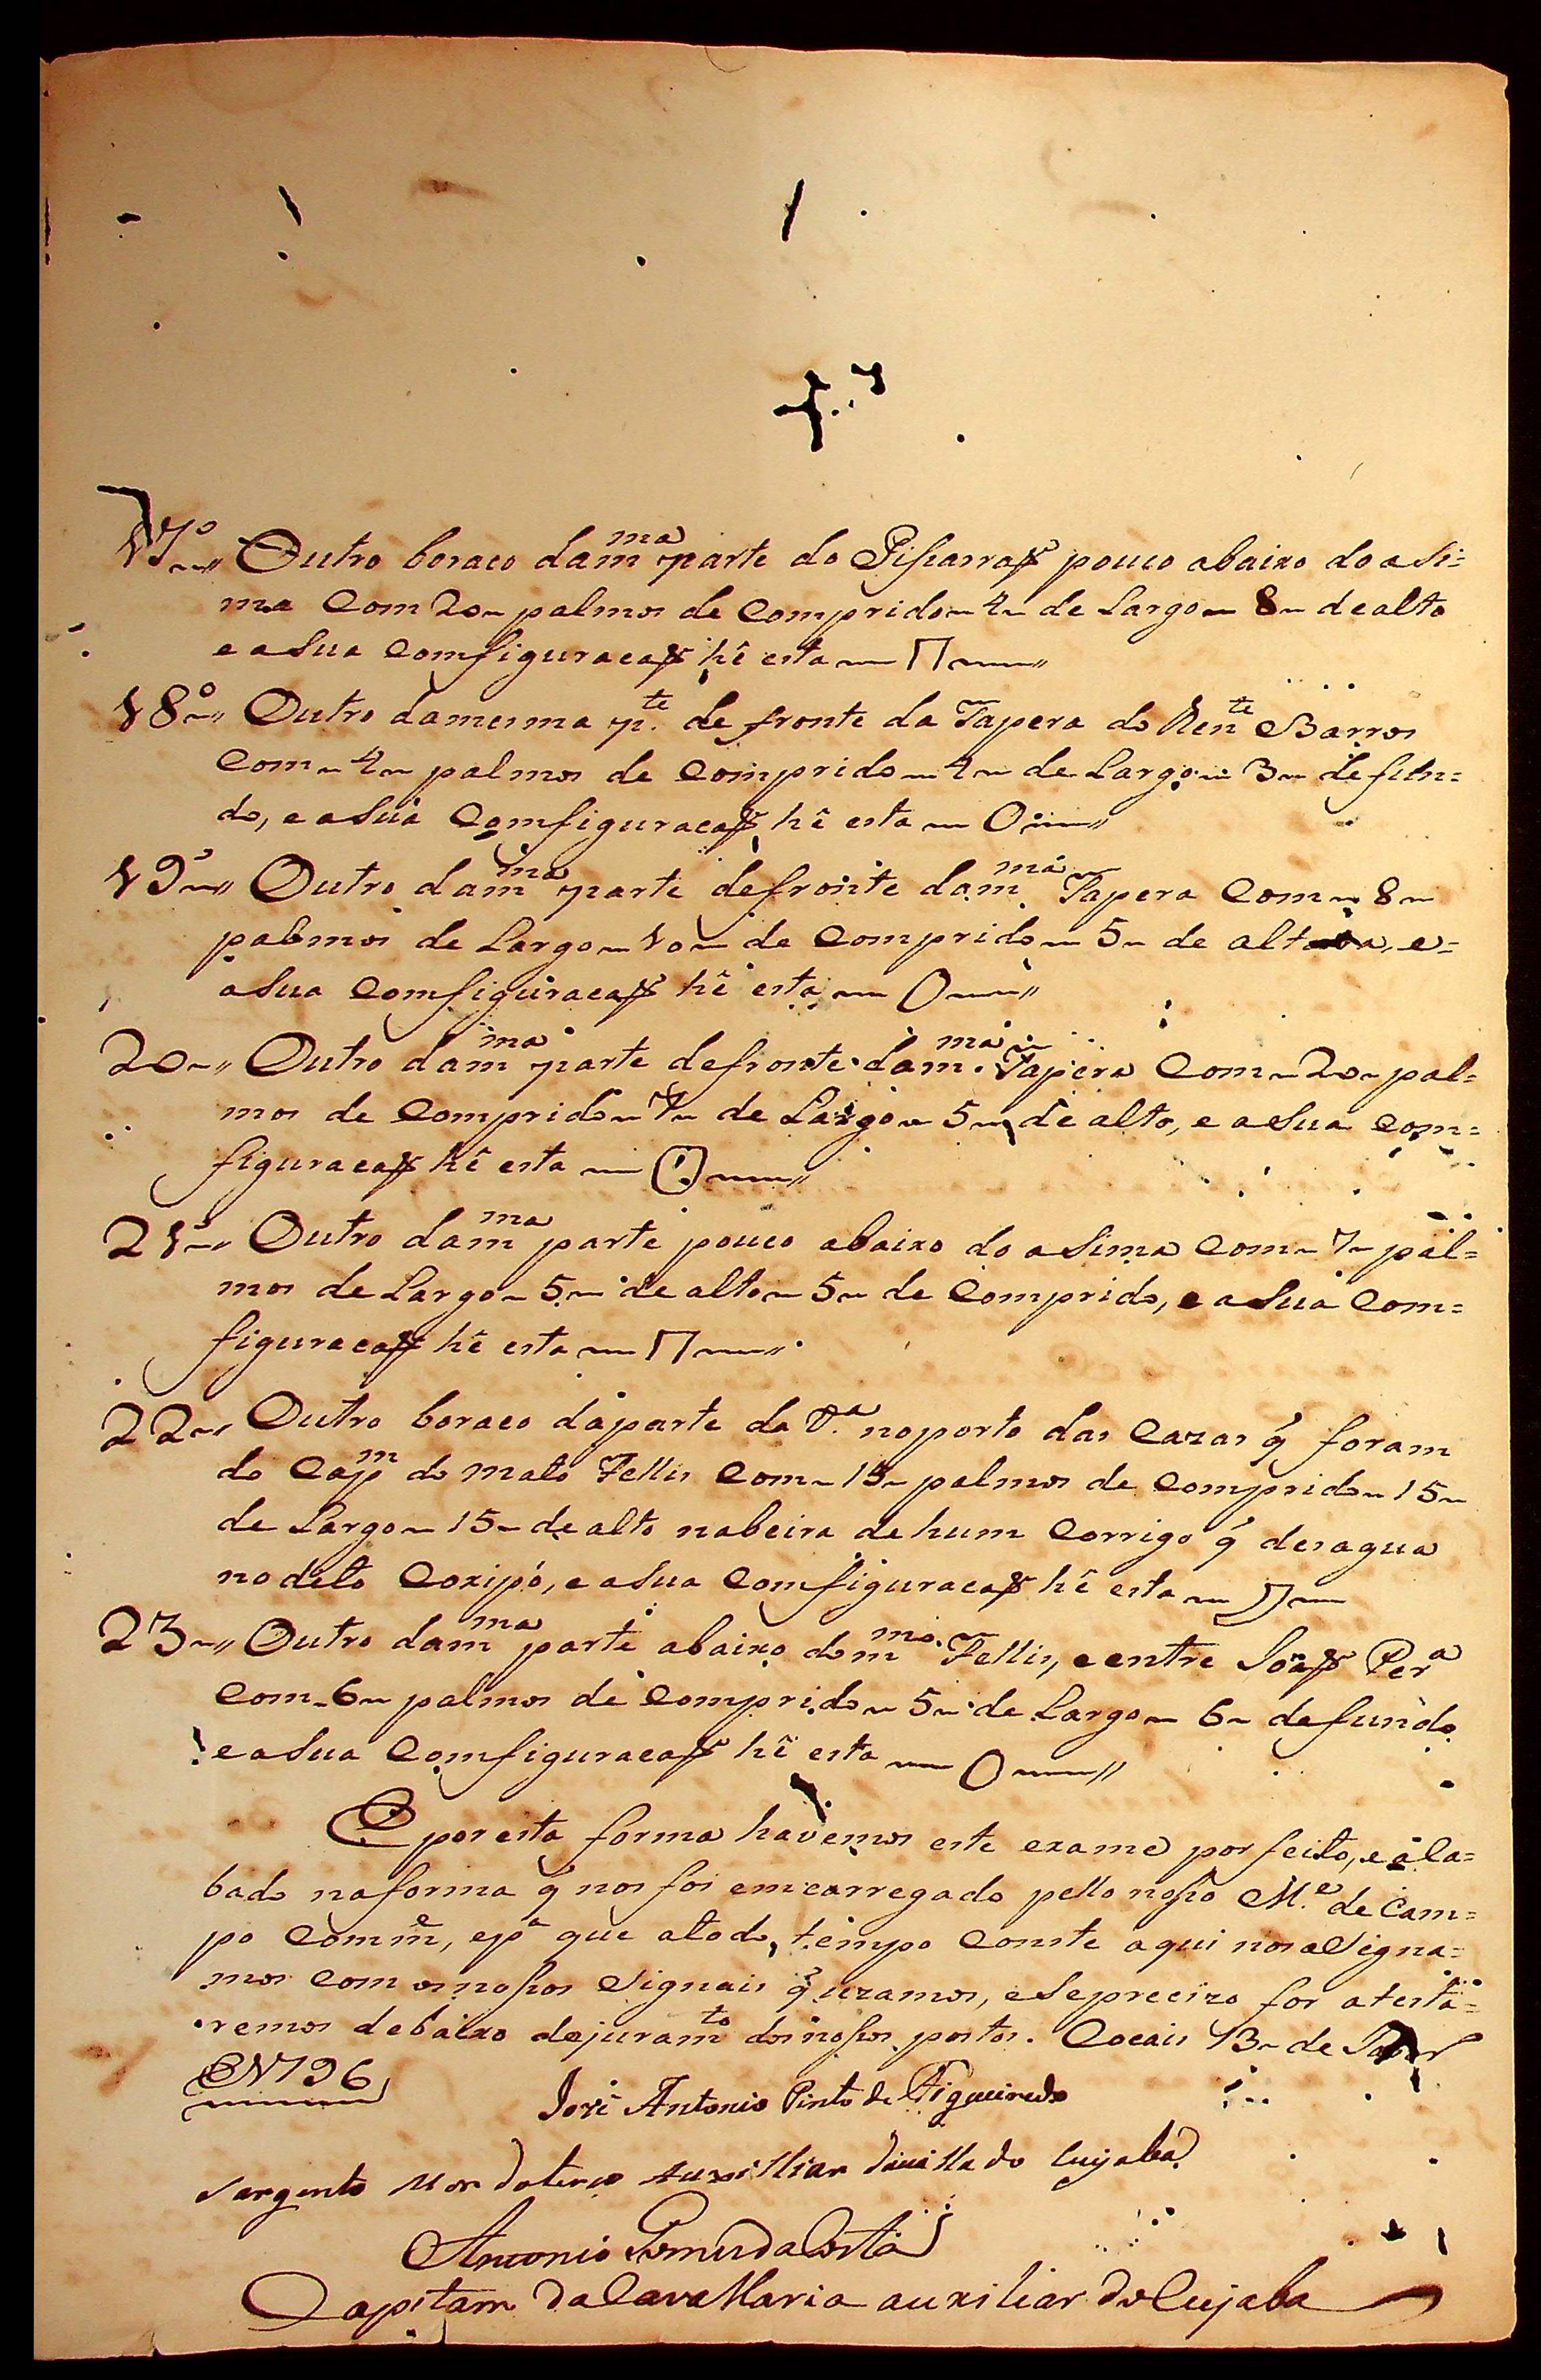 17º Outro boraco dam.ma parte do Pisarraõ pouco abaixo do asi=
ma Com 20 palmos de Comprido 4 de Largo 8 de alto
e a sua Comfiguracaõ hê esta
18º Outro damesma p.te de fronte da Tapera do Ten.te Barros
Com 4 palmos de Comprido 4 de Largo 3 de fun=
do, e a sua Comfiguracaõ hê esta
19º Outro dam.ma parte defronte dam.ma Tapera Com 8
palmos de Largo 10 de Comprido 5 de alto, e=
a sua Comfiguracaõ hê esta
20 Outro dam.ma parte defronte dam.ma Tapera Com 20 pal=
mos de Comprido 7 de Largo 5 de alto, e a sua Com=
figuracaõ hê esta
21 Outro dam.ma parte pouco abaixo do asima Com 7 pal=
mos de Largo 5 de alto 5 de Comprido, e a sua Com=
figuracaõ hê esta
22 Outro boraco daparte da V.a noporto das Cazas q̃ foram
do Cap.m do mato Fellis Com 15 palmos de Comprido 15
de Largo 15 de alto nabeira de hum Corrigo q̃ desagua
no dito Coxipó, e a sua Comfiguracaõ hê esta
23 Outro dam.ma parte abaixo dom.mo Fellis, e entre Joaõ Per.a
Com 6 palmos de Comprido 5 de Largo 6 defundo
e a sua Comfiguracaõ hê esta
E por esta forma havemos este exame por feito, e aca=
bado naforma q̃ nos foi emcarregado pello noso M.e de Cam=
po Comm.e, e p.a que atodo tempo Conste aqui nos asigna=
mos com os nosos Signais q̃ uzamos, e se precizo for atesta=
remos debaixo dejuram.to dos nosos postos. Cocais 13 de
1796
José Antonio Pinto de Figueiredo
Sargento Mor doterço Auxilliar davilla do Cuyaba
Antonio da Costa
Capitam Da Cavallaria auxiliar do Cujaba